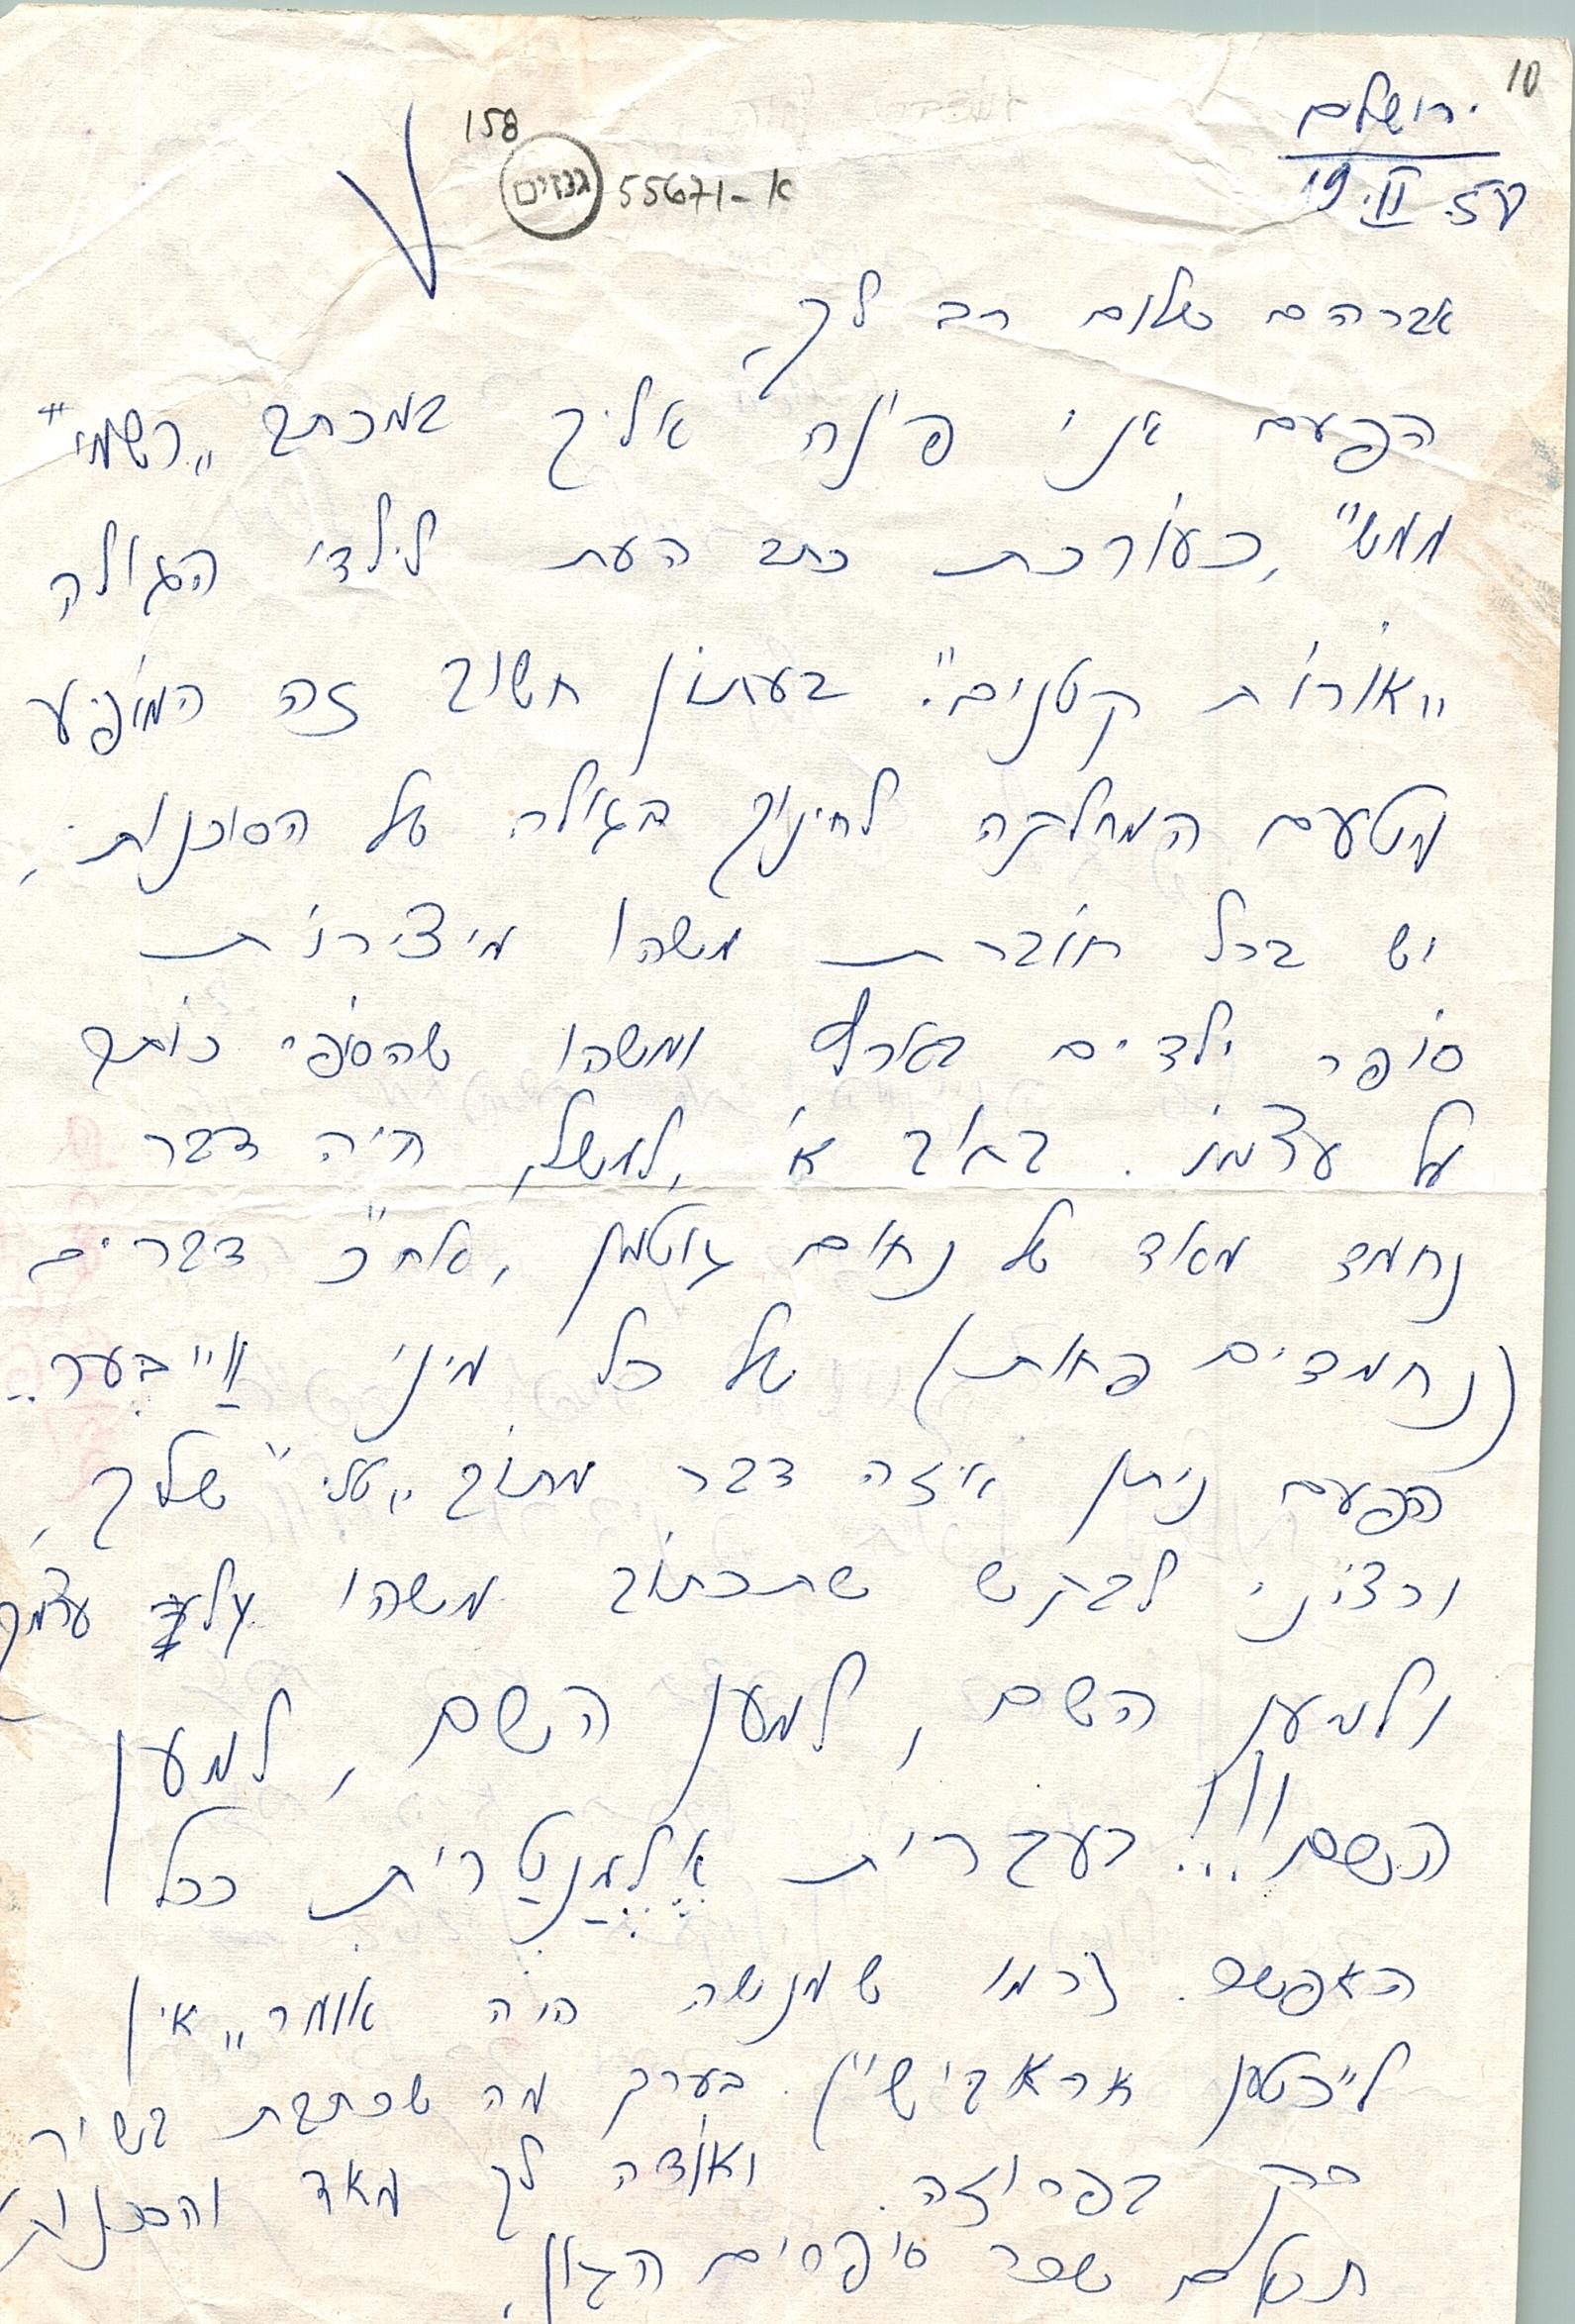 10
ירושלים
19.II.57
158
גנזים 55671-א
אברהם שלום רב לך,
הפעם אני פונה אליך במכתב "רשמי"
ממש", כעורכת כתב העת לילדי הגולה
"אורות קטנים". בעתון חשוב זה המופיע
מטעם המחלקה לחינוך בגולה של הסוכנות,
יש בכל חוברת משהו מיצירות
סופר ילדים בארץ ומשהו שהסופר כותב
על עצמו. בחוב' א', למשל, היה דבר
נחמד מאד של נחום גוטמן, אח"כ דברים
(נחמדים פחות) של כל מיני ווַייבער..
הפעם ניתן איזה דבר מתוך "טלי" שלך,
ורצוני לבקש שתכתוב משהו על עצמך
ולמען השם, למען השם, למען
השם!!!... בעברית אֶלֶמֶנטַרית ככל
האפשר. (כמו שמנשה היה אומר "אין
לייכטען אראבישי"ן. בערך מה שכתבת בשיר
רק בפרוזה. ואודה לך מאד והסוכנות
תשלם שכר סופרים הגון,